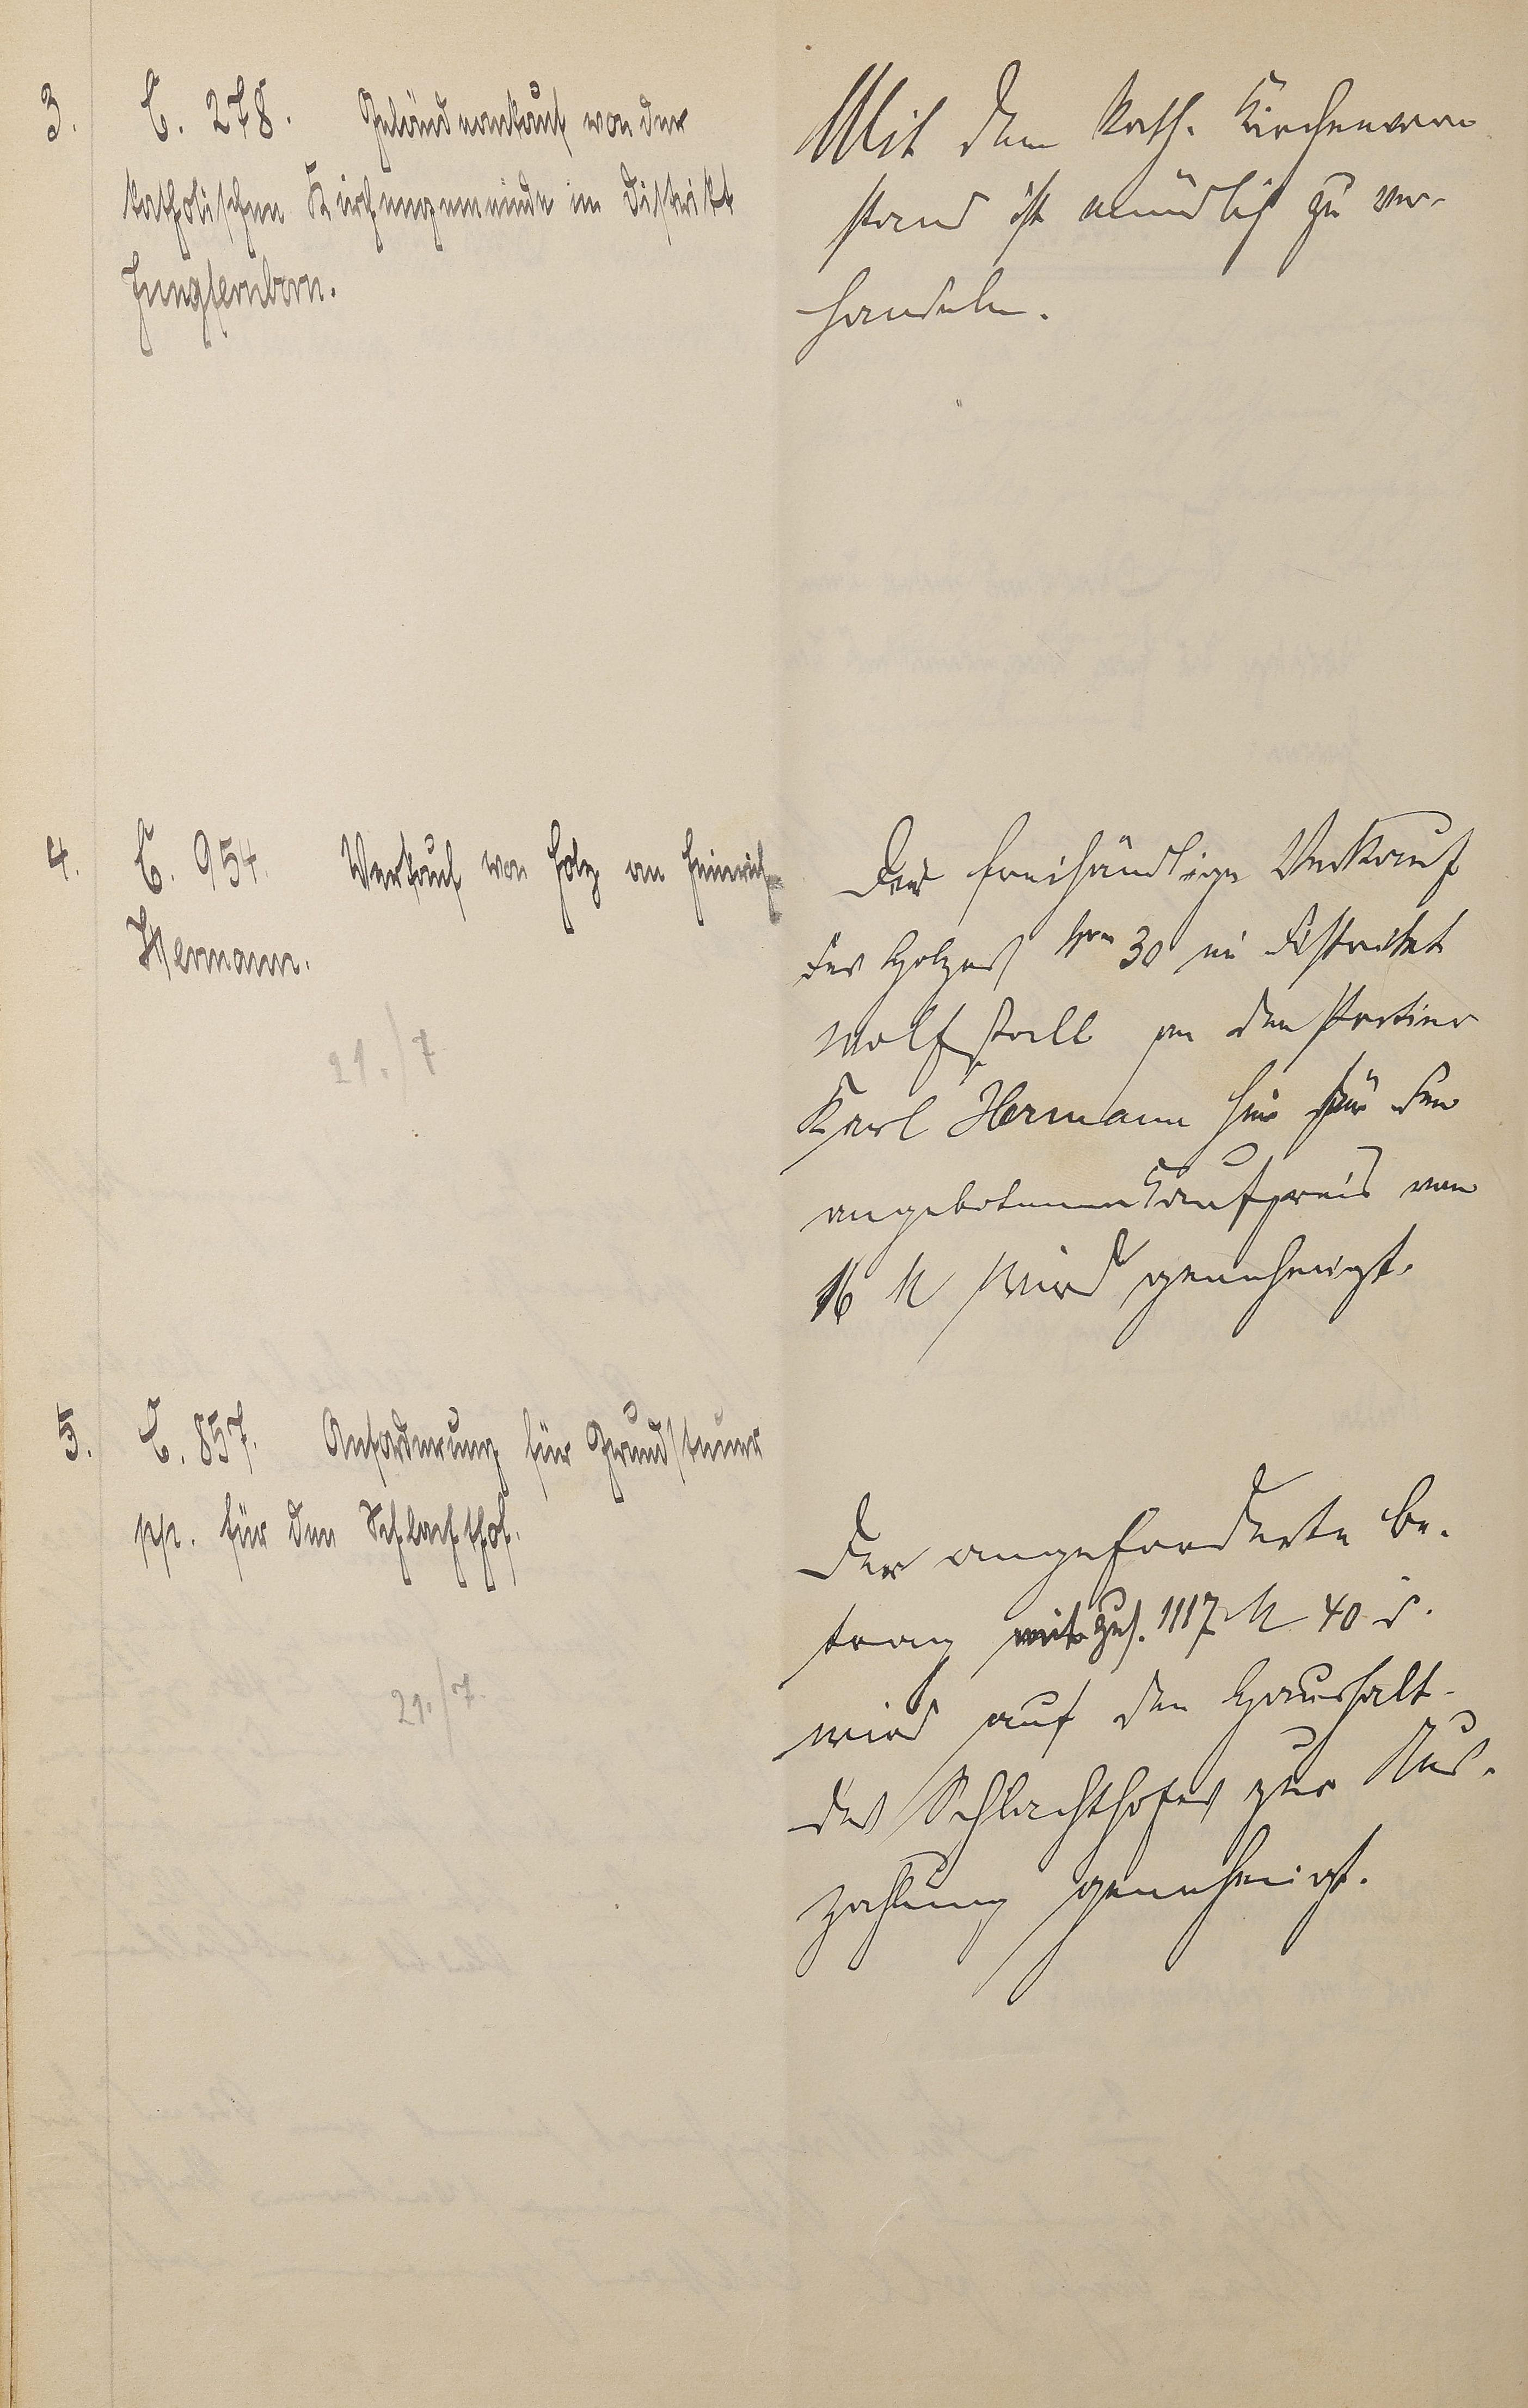 3. C. 278. Geländeankauf von der
katholischen Kirchengemeinde im Distrikt
Jungfernborn.
Mit dem kath. Kirchenvor
stand ist mündlich zu ver-
handeln.
4. C. 954. Verkauf von Holz an Heinrich
Hermann.
21./7
Der freihändige Verkauf
des Holzes Nro 30 im Distrikt
Wolfstall an den Portier
Karl Hermann hier für den
angebotenen Kaufpreis von
16 M wird genehmigt.
5. C. 857. Anforderung für Grundsteuer
pp. für den Schlachthof.
21./7.
Der angeforderte Be-
trag mit zus. 1117 M 40 d.
wird auf den Haushalt-
des Schlachthofes zur Aus-
zahlung genehmigt.